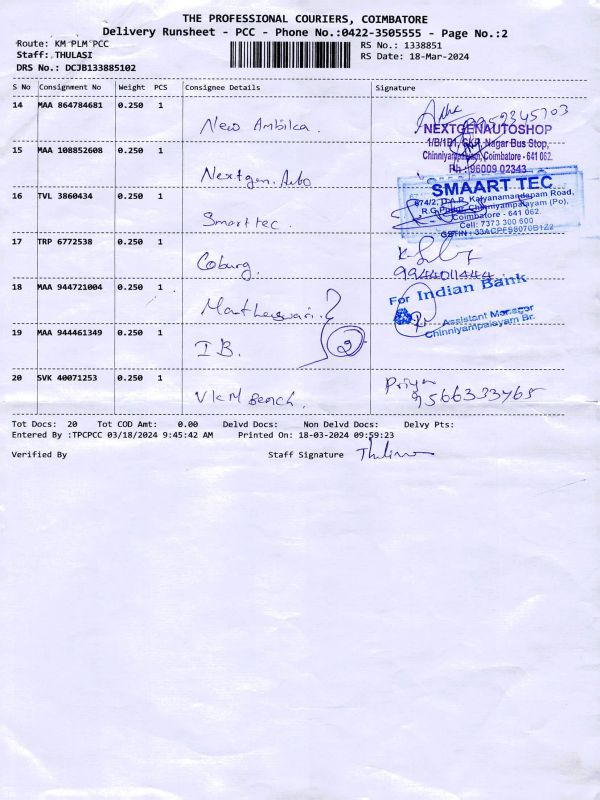 THE PROFESSIONAL COURIERS, COIMBATORE
Delivery Runsheet - PCC - Phone No.:0422-3505555 - Page No.:2
Route: KM PLM PCC
RS No.: 1338851
Staff: THULASI
RS Date: 18-Mar-2024
DRS No.: DCJB133885102
S No Consignment No Weight PCS Consignee Details Signature
14 MAA 864784681 0.250 1 New Ambika.
NEXTGENAUTOSHOP
1/B/1B1, GKR Nagar Bus Stop,
Chinniyampalayam, Coimbatore - 641 062.
Ph : 96009 02343
15 MAA 108852608 0.250 1 Nextgen. Auto
16 TVL 3860434 0.250 1 Smart tec.
SMAART TEC
674/2, D.A.R. Kalyanamandapam Road,
R.G. Pudur, Chinniyampalayam (Po),
Coimbatore - 641 062.
Cell: 7373 300 600
17 TRP 6772538 0.250 1 Coburg.
9944011444
18 MAA 944721004 0.250 1
For Indian Bank
Assistant Manager
Chinniyampalayam Br.
19 MAA 944461349 0.250 1 IB. 2
20 SVK 40071253 0.250 1 VKM Bench. Priya
9566333765
Tot Docs: 20 Tot COD Amt: 0.00 Delvd Docs: Non Delvd Docs: Delvy Pts:
Entered By :TPCPCC 03/18/2024 9:45:42 AM Printed On: 18-03-2024 09:59:23
Verified By Staff Signature